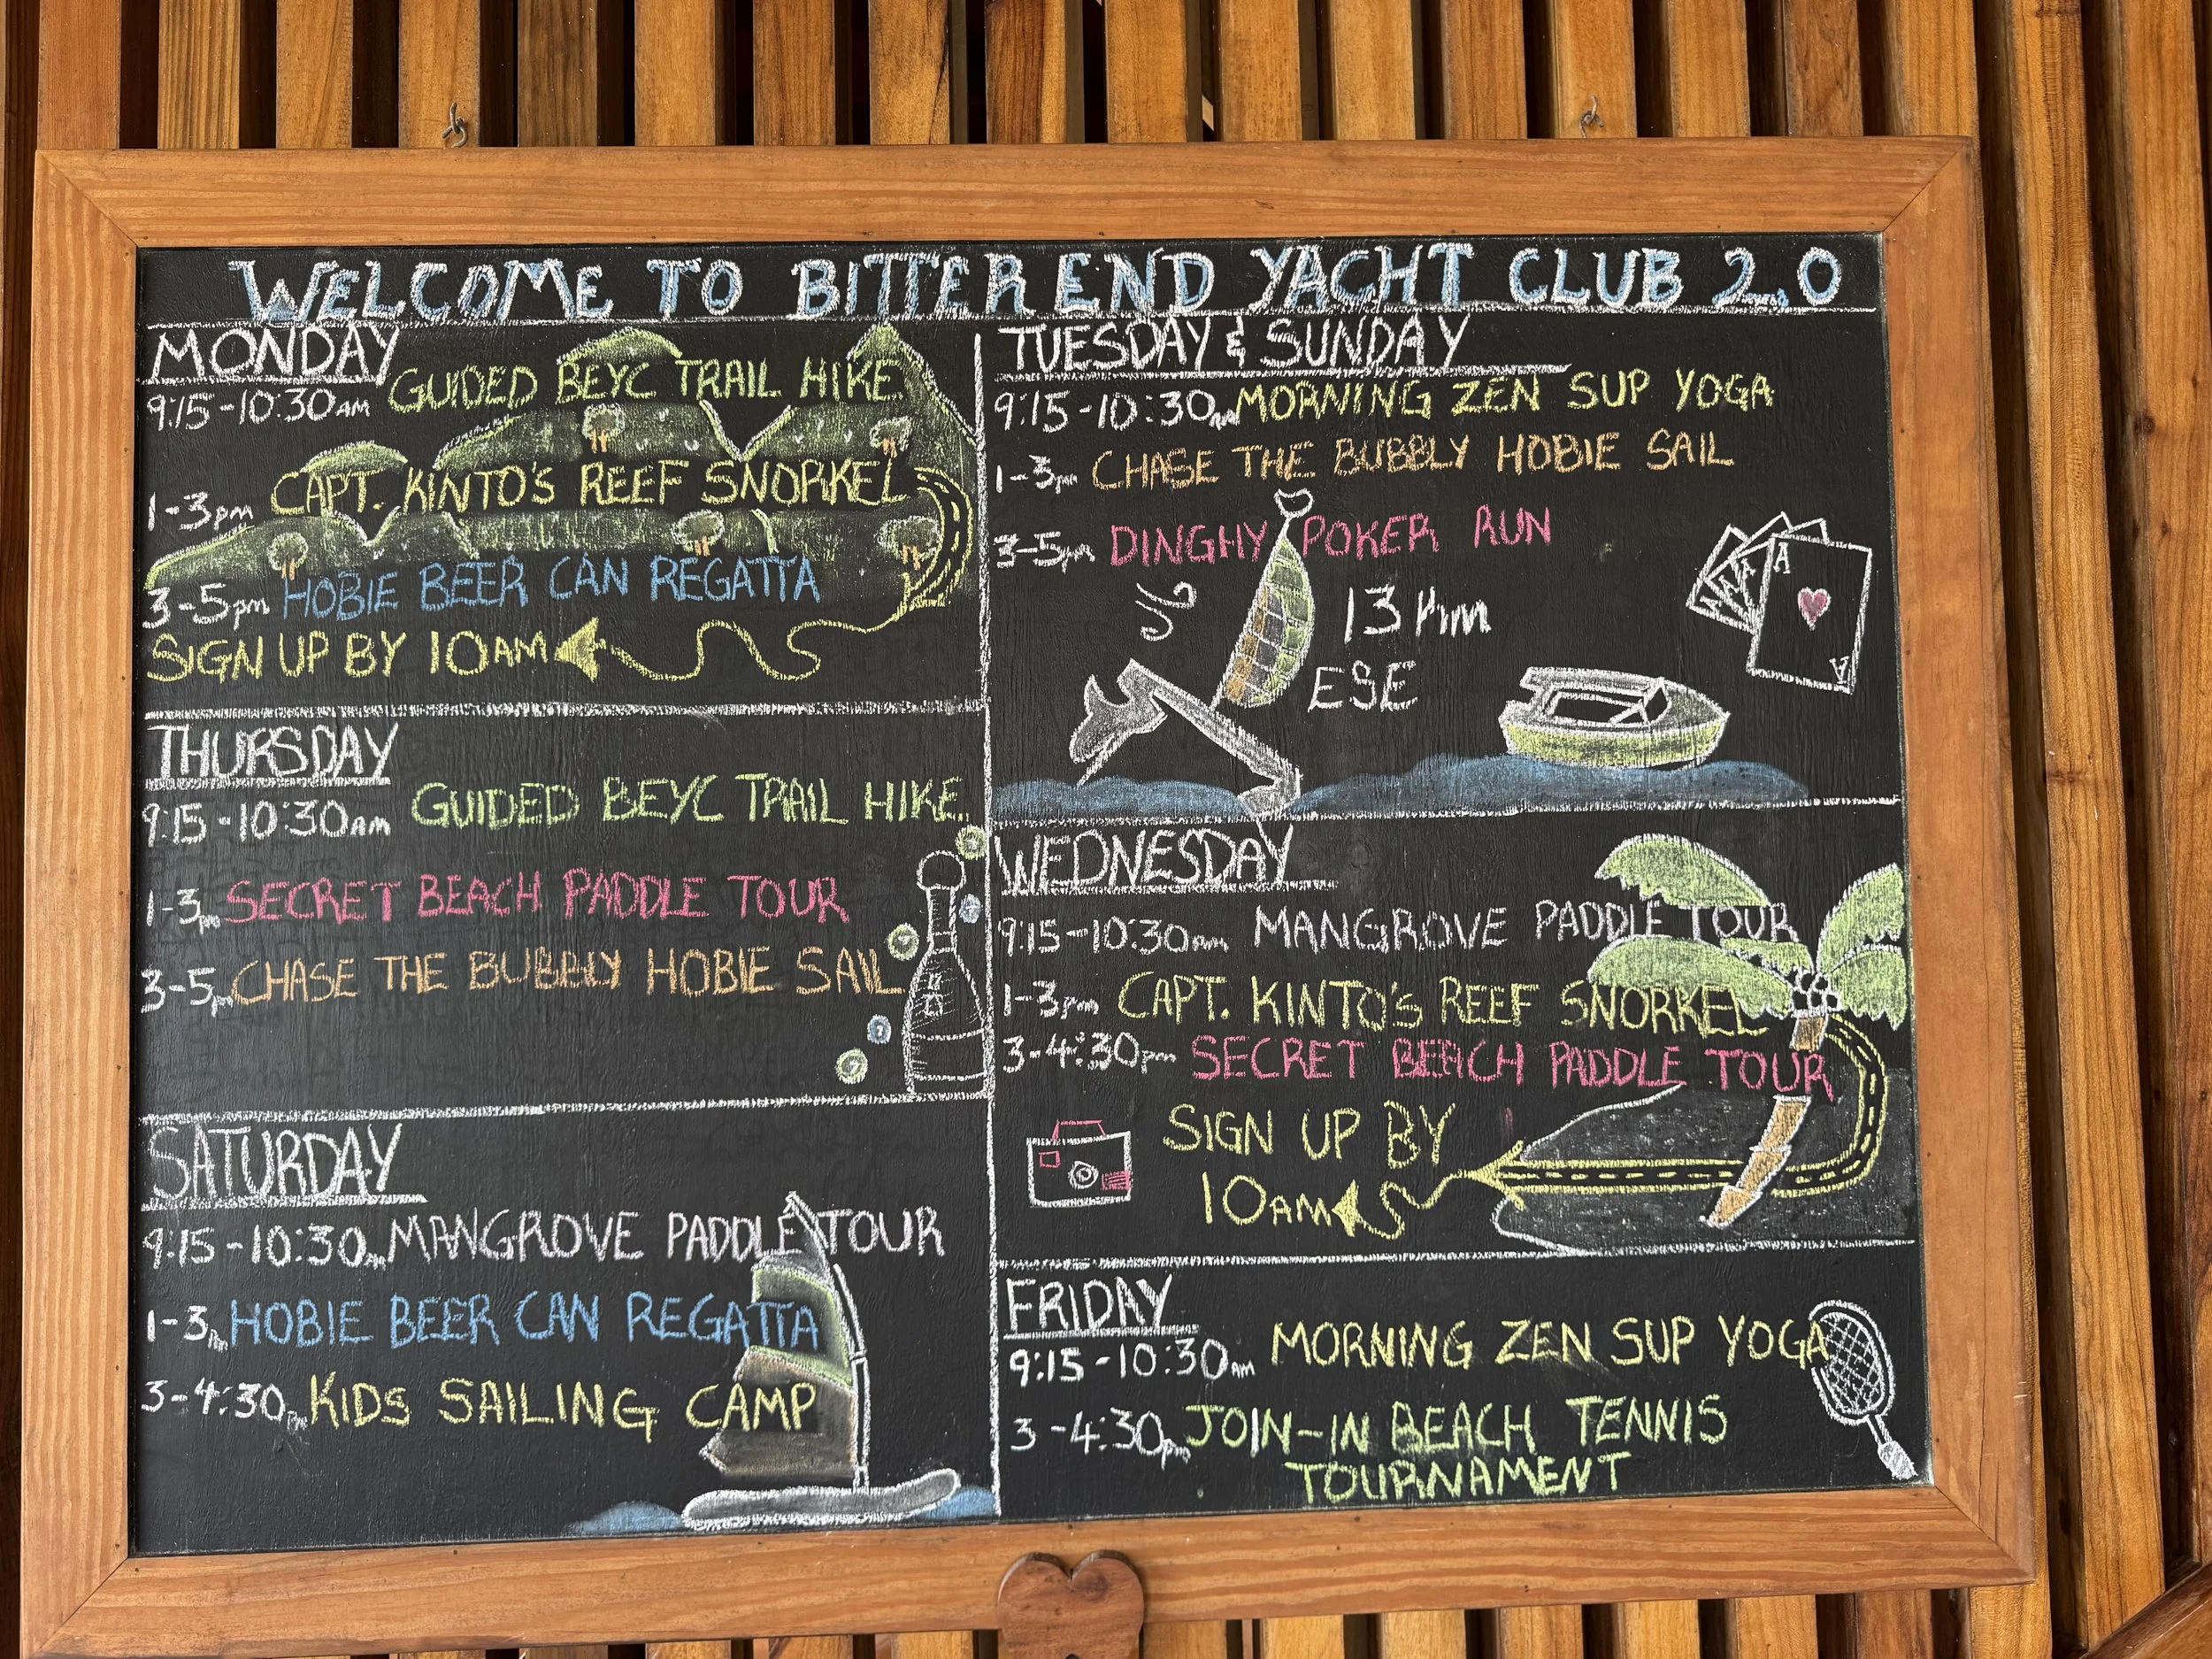 WELCOME TO BITTER END YACHT CLUB 2.0
MONDAY
9:15-10:30AM GUIDED BEYC TRAIL HIKE
1-3pm CAPT. KINTO'S REEF SNORKEL
3-5pm HOBIE BEER CAN REGATTA
SIGN UP BY 10AM
THURSDAY
9:15-10:30AM GUIDED BEYC TRAIL HIKE
1-3pm SECRET BEACH PADDLE TOUR
3-5pm CHASE THE BUBBLY HOBIE SAIL
SATURDAY
9:15-10:30AM MANGROVE PADDLE TOUR
1-3pm HOBIE BEER CAN REGATTA
3-4:30pm KIDS SAILING CAMP
TUESDAY & SUNDAY
9:15-10:30AM MORNING ZEN SUP YOGA
1-3pm CHASE THE BUBBLY HOBIE SAIL
3-5pm DINGHY POKER RUN
13
ESE
A A A A
A
WEDNESDAY
9:15-10:30AM MANGROVE PADDLE TOUR
1-3pm CAPT. KINTO'S REEF SNORKEL
3-4:30pm SECRET BEACH PADDLE TOUR
SIGN UP BY
10AM
FRIDAY
9:15-10:30AM MORNING ZEN SUP YOGA
3-4:30pm JOIN-IN BEACH TENNIS
TOURNAMENT